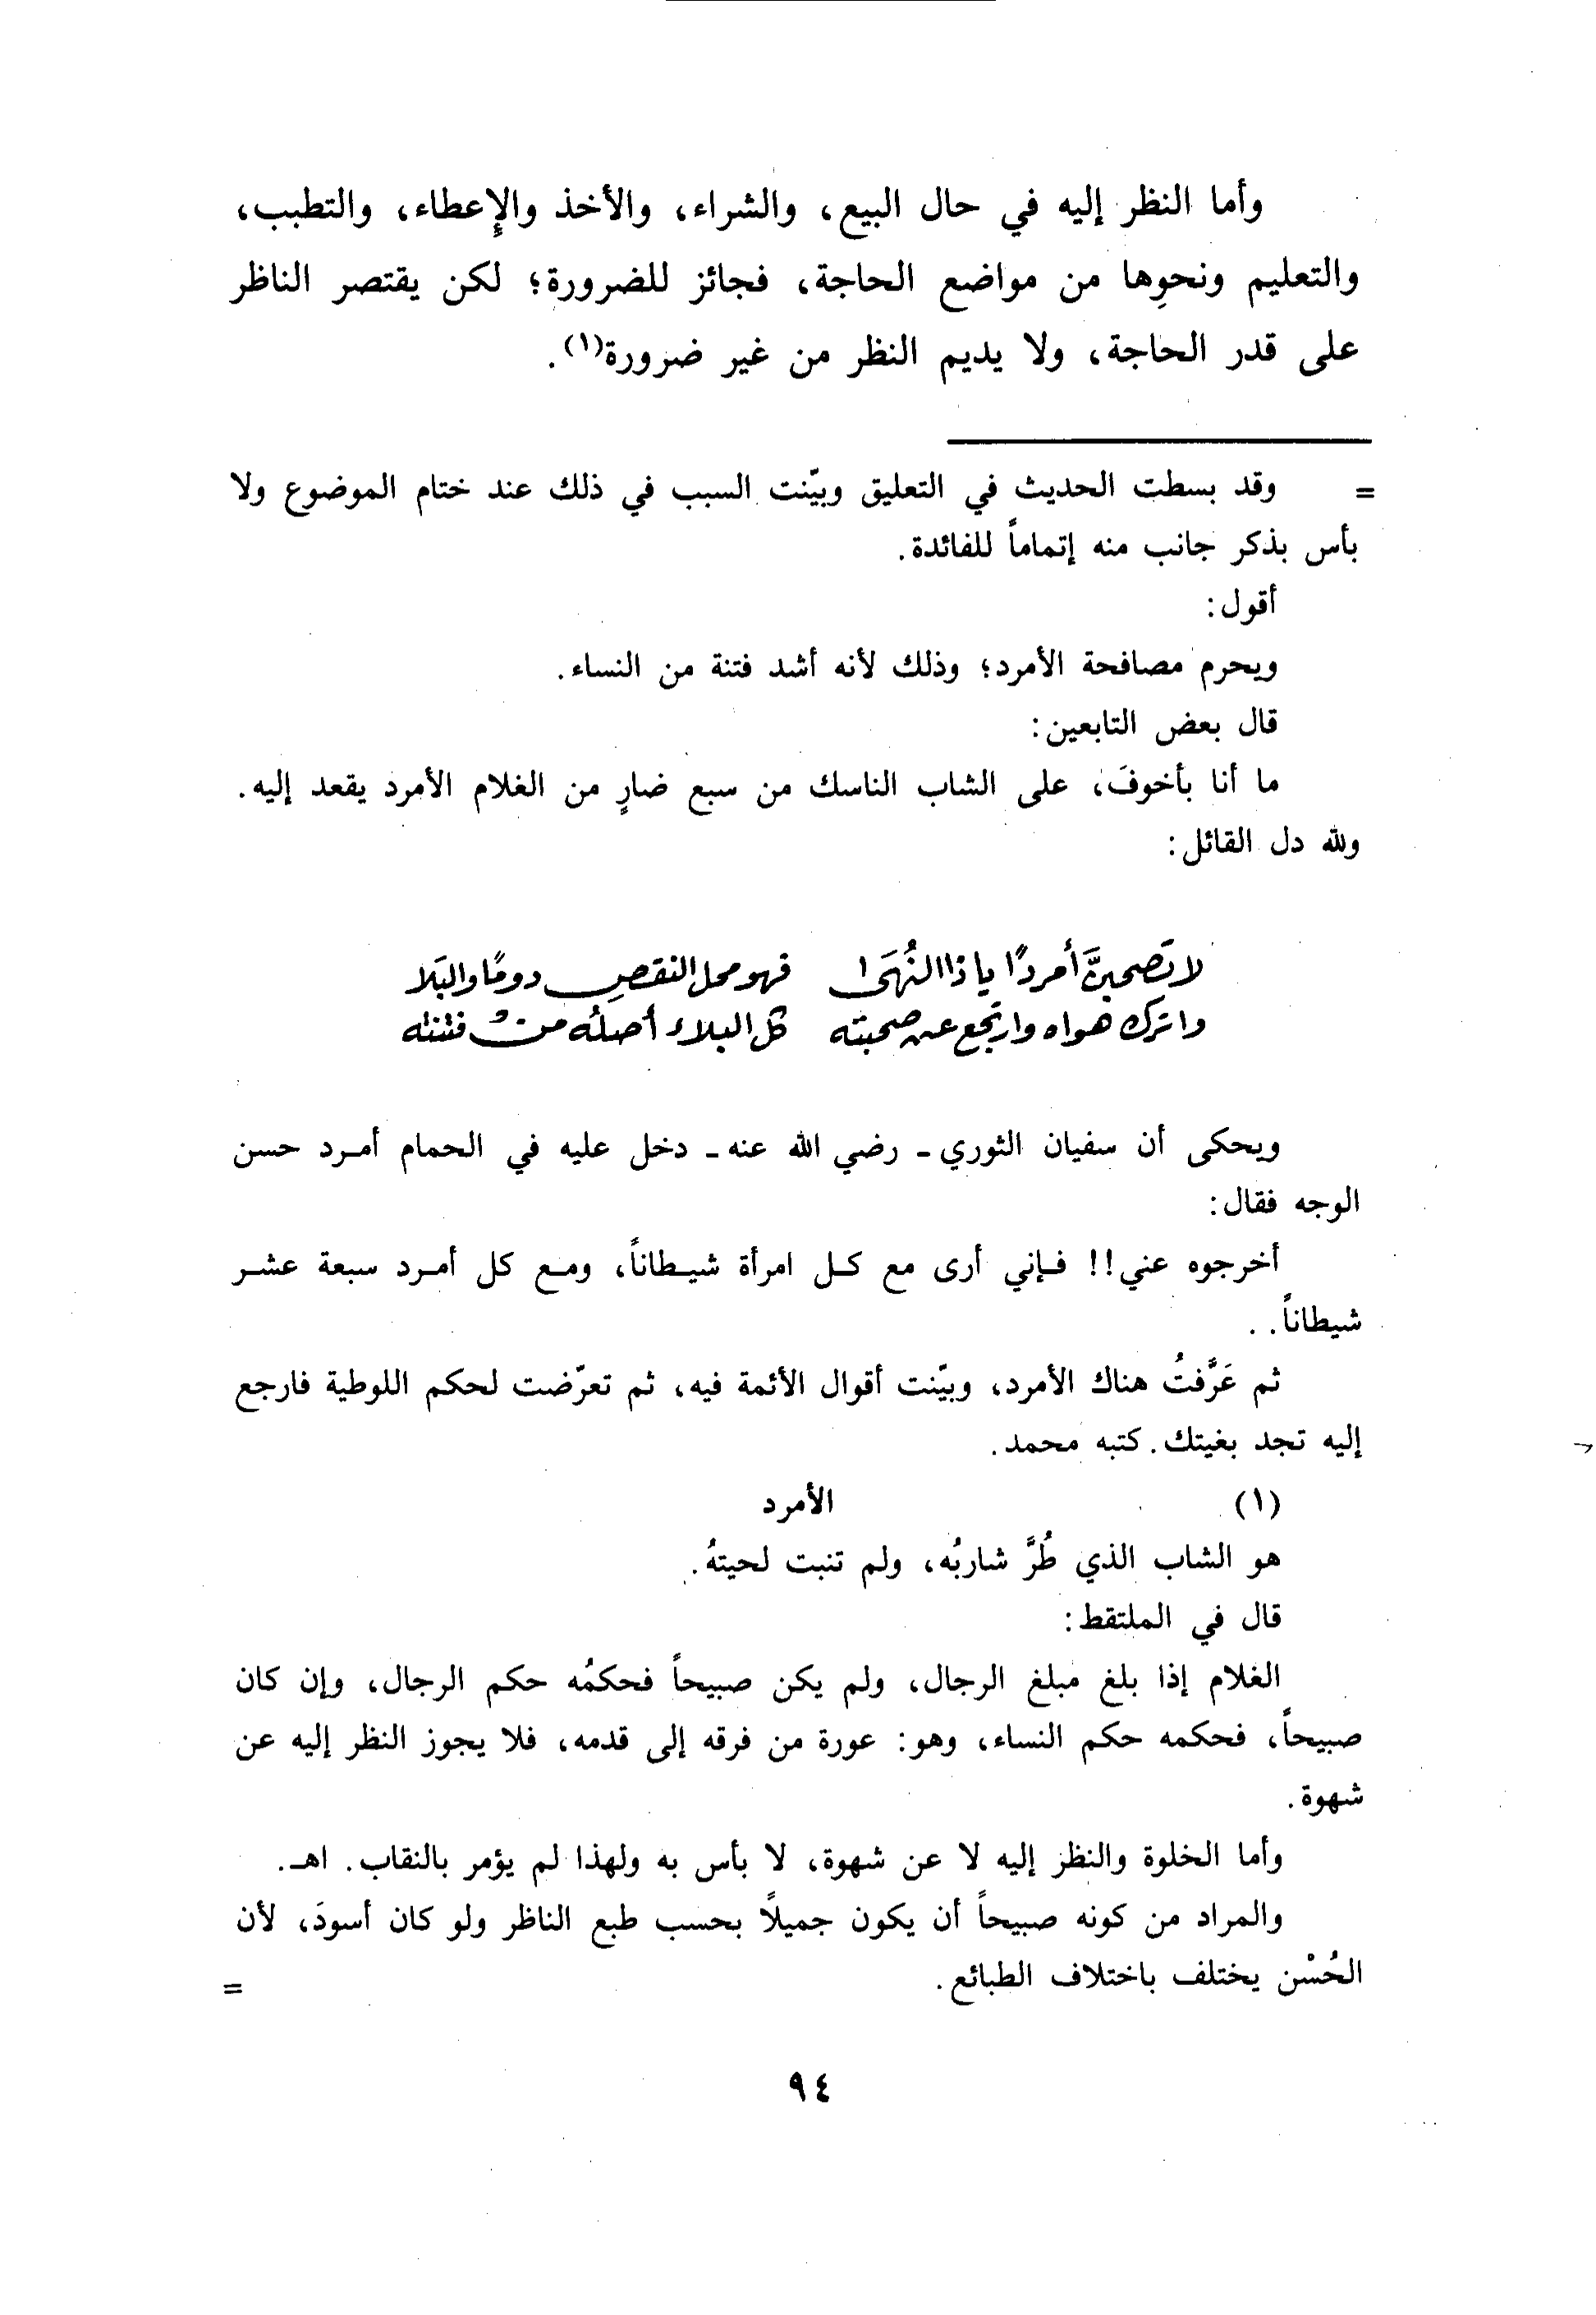 وأما النظر إليه في حال البيع، والشراء، والأخذ والإعطاء، والتطبب،
والتعليم ونحوِها من مواضع الحاجة، فجائز للضرورة؛ لكن يقتصر الناظر
على قدر الحاجة، ولا يديم النظر من غير ضرورة(١).
= وقد بسطت الحديث في التعليق وبيّنت السبب في ذلك عند ختام الموضوع ولا
بأس بذكر جانب منه إتماماً للفائدة.
أقول:
ويحرم مصافحة الأمرد؛ وذلك لأنه أشد فتنة من النساء.
قال بعض التابعين:
ما أنا بأخوفَ، على الشاب الناسك من سبع ضارٍ من الغلام الأمرد يقعد إليه.
ولله دل القائل:
لا تصحبنَّ أمردًا يا ذا النُهَى فهو محل النقصِ دومًا والبَلا
واترك هواه وارتجع عن صحبته كل البلاء أصلُه من فتنته
ويحكى أن سفيان الثوري ـ رضي الله عنه ـ دخل عليه في الحمام أمرد حسن
الوجه فقال:
أخرجوه عني!! فإني أرى مع كل امرأة شيطاناً، ومع كل أمرد سبعة عشر
شيطاناً. .
ثم عَرَّفتُ هناك الأمرد، وبيّنت أقوال الأئمة فيه، ثم تعرّضت لحكم اللوطية فارجع
إليه تجد بغيتك. كتبه محمد.
(١) الأمرد
هو الشاب الذي طُرَّ شاربُه، ولم تنبت لحيتهُ.
قال في الملتقط:
الغلام إذا بلغ مبلغ الرجال، ولم يكن صبيحاً فحكمُه حكم الرجال، وإن كان
صبيحاً، فحكمه حكم النساء، وهو: عورة من فرقه إلى قدمه، فلا يجوز النظر إليه عن
شهوة.
وأما الخلوة والنظر إليه لا عن شهوة، لا بأس به ولهذا لم يؤمر بالنقاب. اهـ.
والمراد من كونه صبيحاً أن يكون جميلاً بحسب طبع الناظر ولو كان أسودَ، لأن
الحُسْن يختلف باختلاف الطبائع. =
٩٤